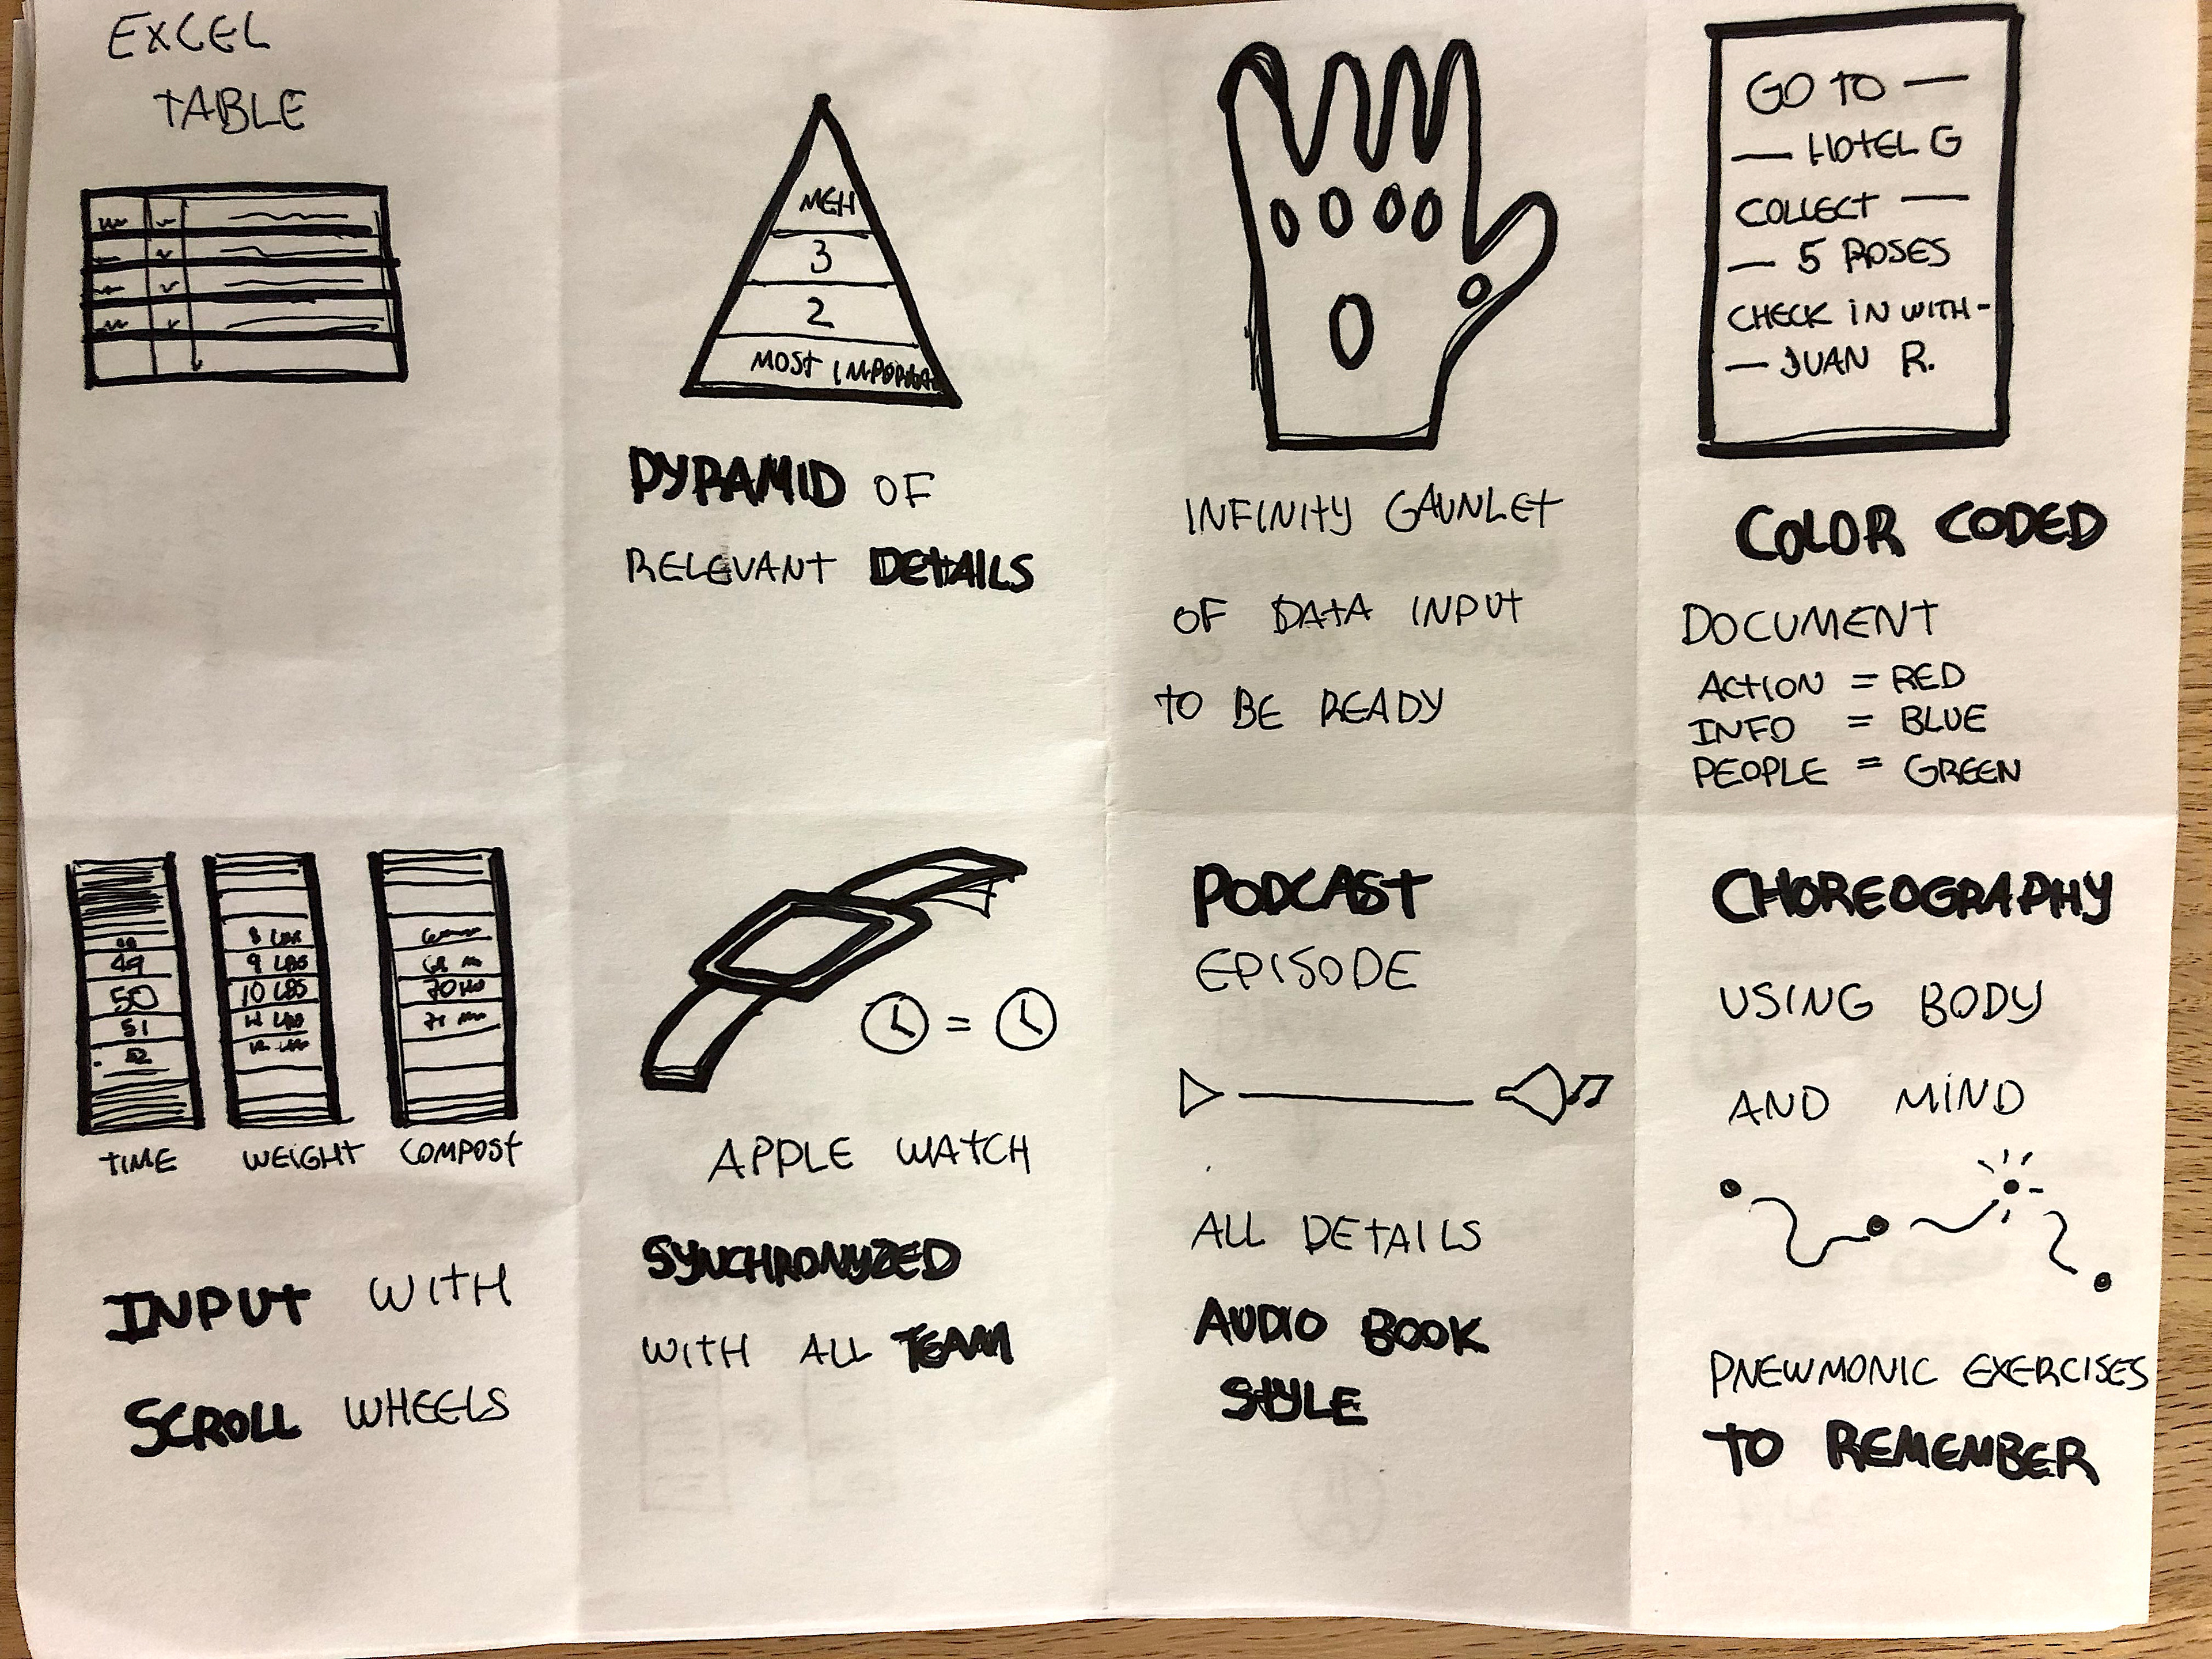 EXCEL
TABLE
MEH
3
2
MOST IMPORTANT
PYRAMID OF
RELEVANT DETAILS
INFINITY GAUNLET
OF DATA INPUT
TO BE READY
GO TO —
— HOTEL G
COLLECT —
— 5 ROSES
CHECK IN WITH -
— JUAN R.
COLOR CODED
DOCUMENT
ACTION = RED
INFO = BLUE
PEOPLE = GREEN
49
50
51
52
TIME
9 LBS
10 LBS
WEIGHT
COMPOST
INPUT WITH
SCROLL WHEELS
=
APPLE WATCH
SYNCHRONYZED
WITH ALL TEAM
PODCAST
EPISODE
ALL DETAILS
AUDIO BOOK
STYLE
CHOREOGRAPHY
USING BODY
AND MIND
PNEWMONIC EXERCISES
TO REMEMBER